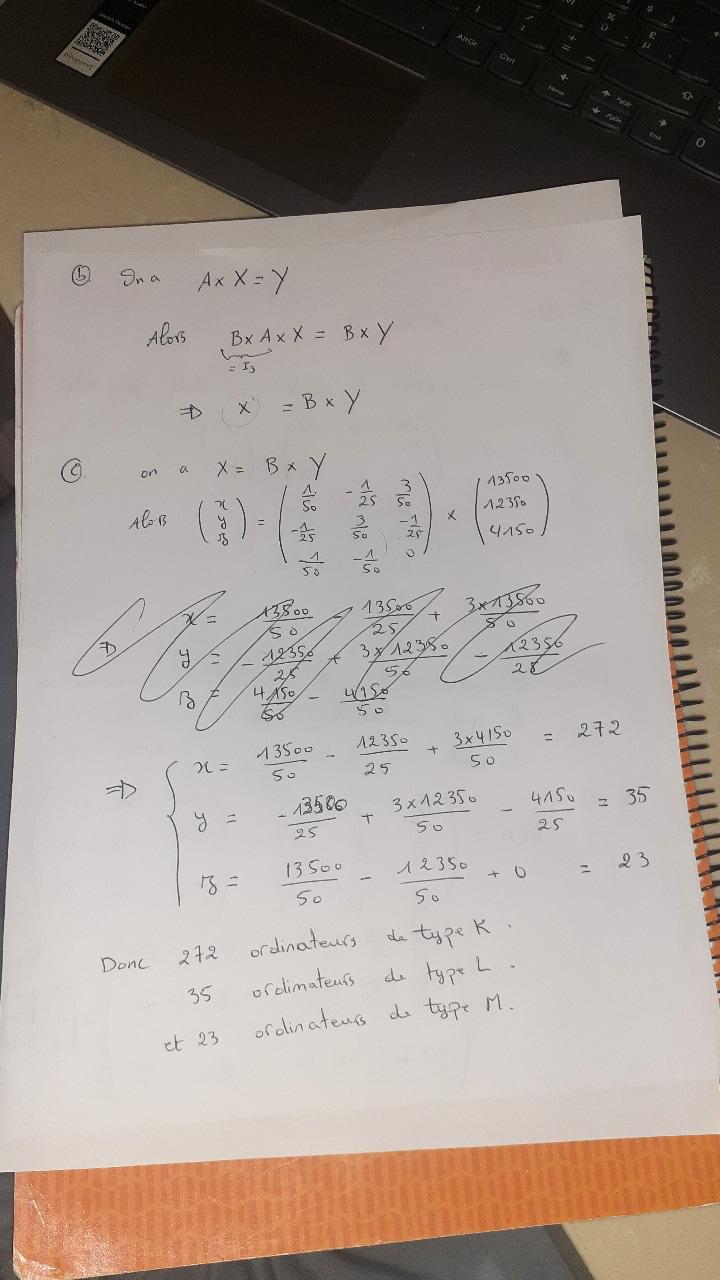 AltGr
Ctrl
Home
PgUp
PgDn
End
0
ⓑ On a A x X = Y
Alors B x A x X = B x Y
= I3
⇒ X = B x Y
ⓒ on a X = B x Y
Alors (x y z) = (1/50 -1/25 3/50 -1/25 3/50 -1/25 1/50 -1/50 0) x (13500 12350 4150)
⇒ x = 13500/50 - 13500/25 + 3x13500/50
y = -12350/25 + 3x12350/50 - 12350/25
z = 4150/50 - 4150/50
⇒ { x = 13500/50 - 12350/25 + 3x4150/50 = 272
y = -13500/25 + 3x12350/50 - 4150/25 = 35
z = 13500/50 - 12350/50 + 0 = 23
Donc 272 ordinateurs de type K.
35 ordinateurs de type L.
et 23 ordinateurs de type M.